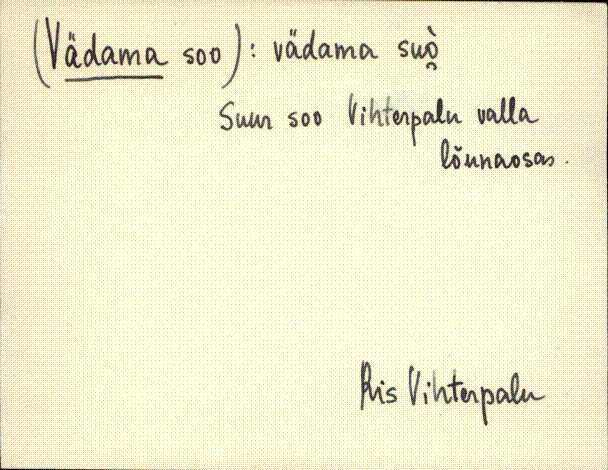 (Vädama soo): vädama suò̯
Suur soo Vihterpalu valla
lõunaosas.
Ris Vihterpalu